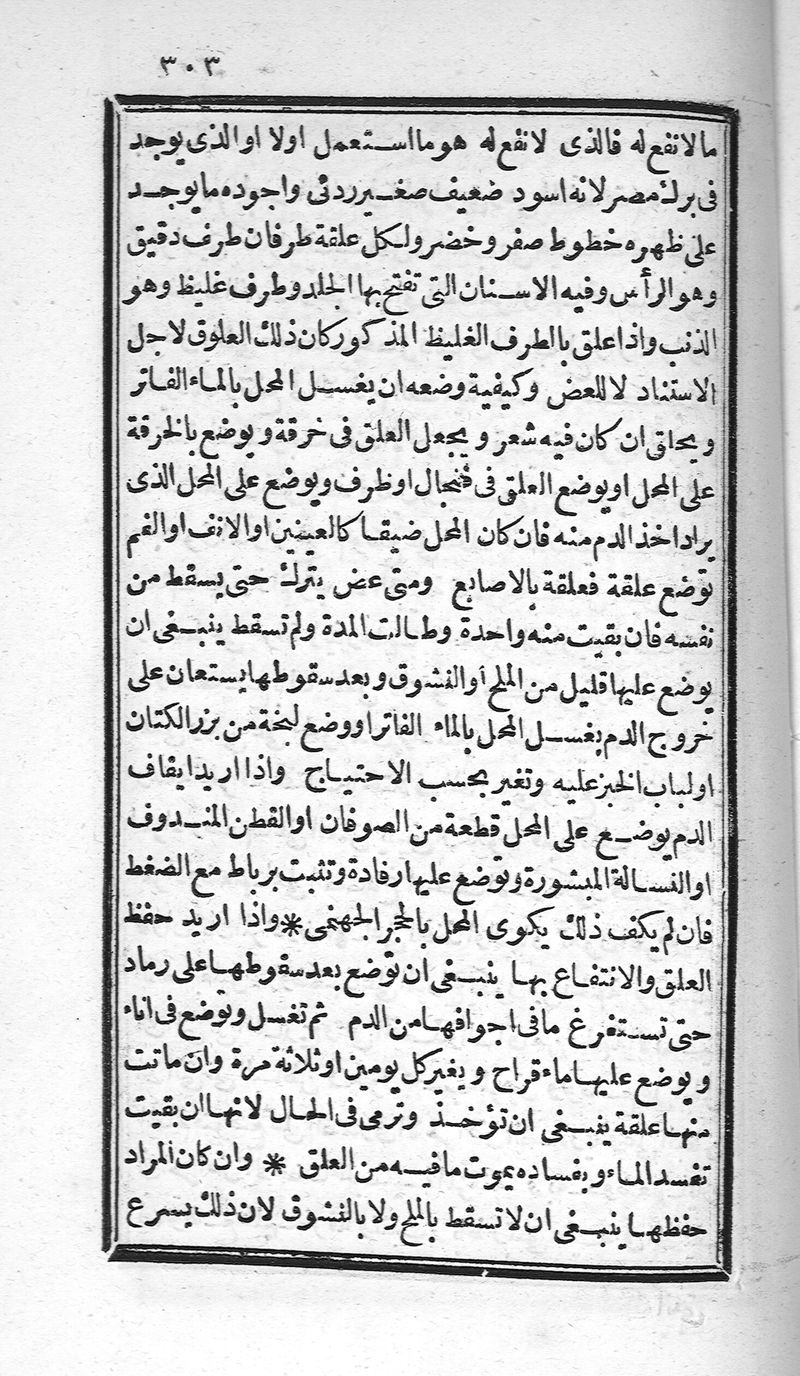 ٣٠٣
مالانفع له فالذى لانفع له هوما استعمل اولا او الذى يوجد
فى برك مصر لانه اسود ضعيف صغير ردئ واجوده ما يوجد
على ظهره خطوط صفر وخضر ولكل علقة طرفان طرف دقيق
وهو الرأس وفيه الاسنان التى تفتح بها الجلد وطرف غليظ وهو
الذنب واذا علق بالطرف الغليظ المذكور كان ذلك العلوق لاجل
الاستناد لا للعض وكيفية وضعه ان يغسل المحل بالماء الفاتر
ويحلق ان كان فيه شعر ويجعل العلق فى خرقة ويوضع بالخرقة
على المحل او يوضع العلق فى فنجال او ظرف ويوضع على المحل الذى
يراد اخذ الدم منه فان كان المحل ضيقا كالعينين او الانف او الفم
توضع علقة فعلقة بالاصابع ومتى عض يترك حتى يسقط من
نفسه فان بقيت منه واحدة وطالت المدة ولم تسقط ينبغى ان
يوضع عليها قليل من الملح أو النشوق وبعد سقوطها يستعان على
خروج الدم بغسل المحل بالماء الفاتر او وضع لبخة من بزر الكتان
او لباب الخبز عليه وتغير بحسب الاحتياج واذا اريد ايقاف
الدم يوضع على المحل قطعة من الصوفان او القطن المندوف
او النسالة المبشورة وتوضع عليها رفادة وتثبت برباط مع الضغط
فان لم يكف ذلك يكوى المحل بالحجر الجهنمى * واذا اريد حفظ
العلق والانتفاع بها ينبغى ان توضع بعد سقوطها على رماد
حتى تستفرغ ما فى اجوافها من الدم ثم تغسل وتوضع فى اناء
ويوضع عليها ماء قراح ويغير كل يومين او ثلاثة مرة وان ماتت
منها علقة ينبغى ان تؤخذ وترمى فى الحال لانها ان بقيت
تفسد الماء وبفساده يموت ما فيه من العلق * وان كان المراد
حفظها ينبغى ان لا تسقط بالملح ولا بالنشوق لان ذلك يسرع